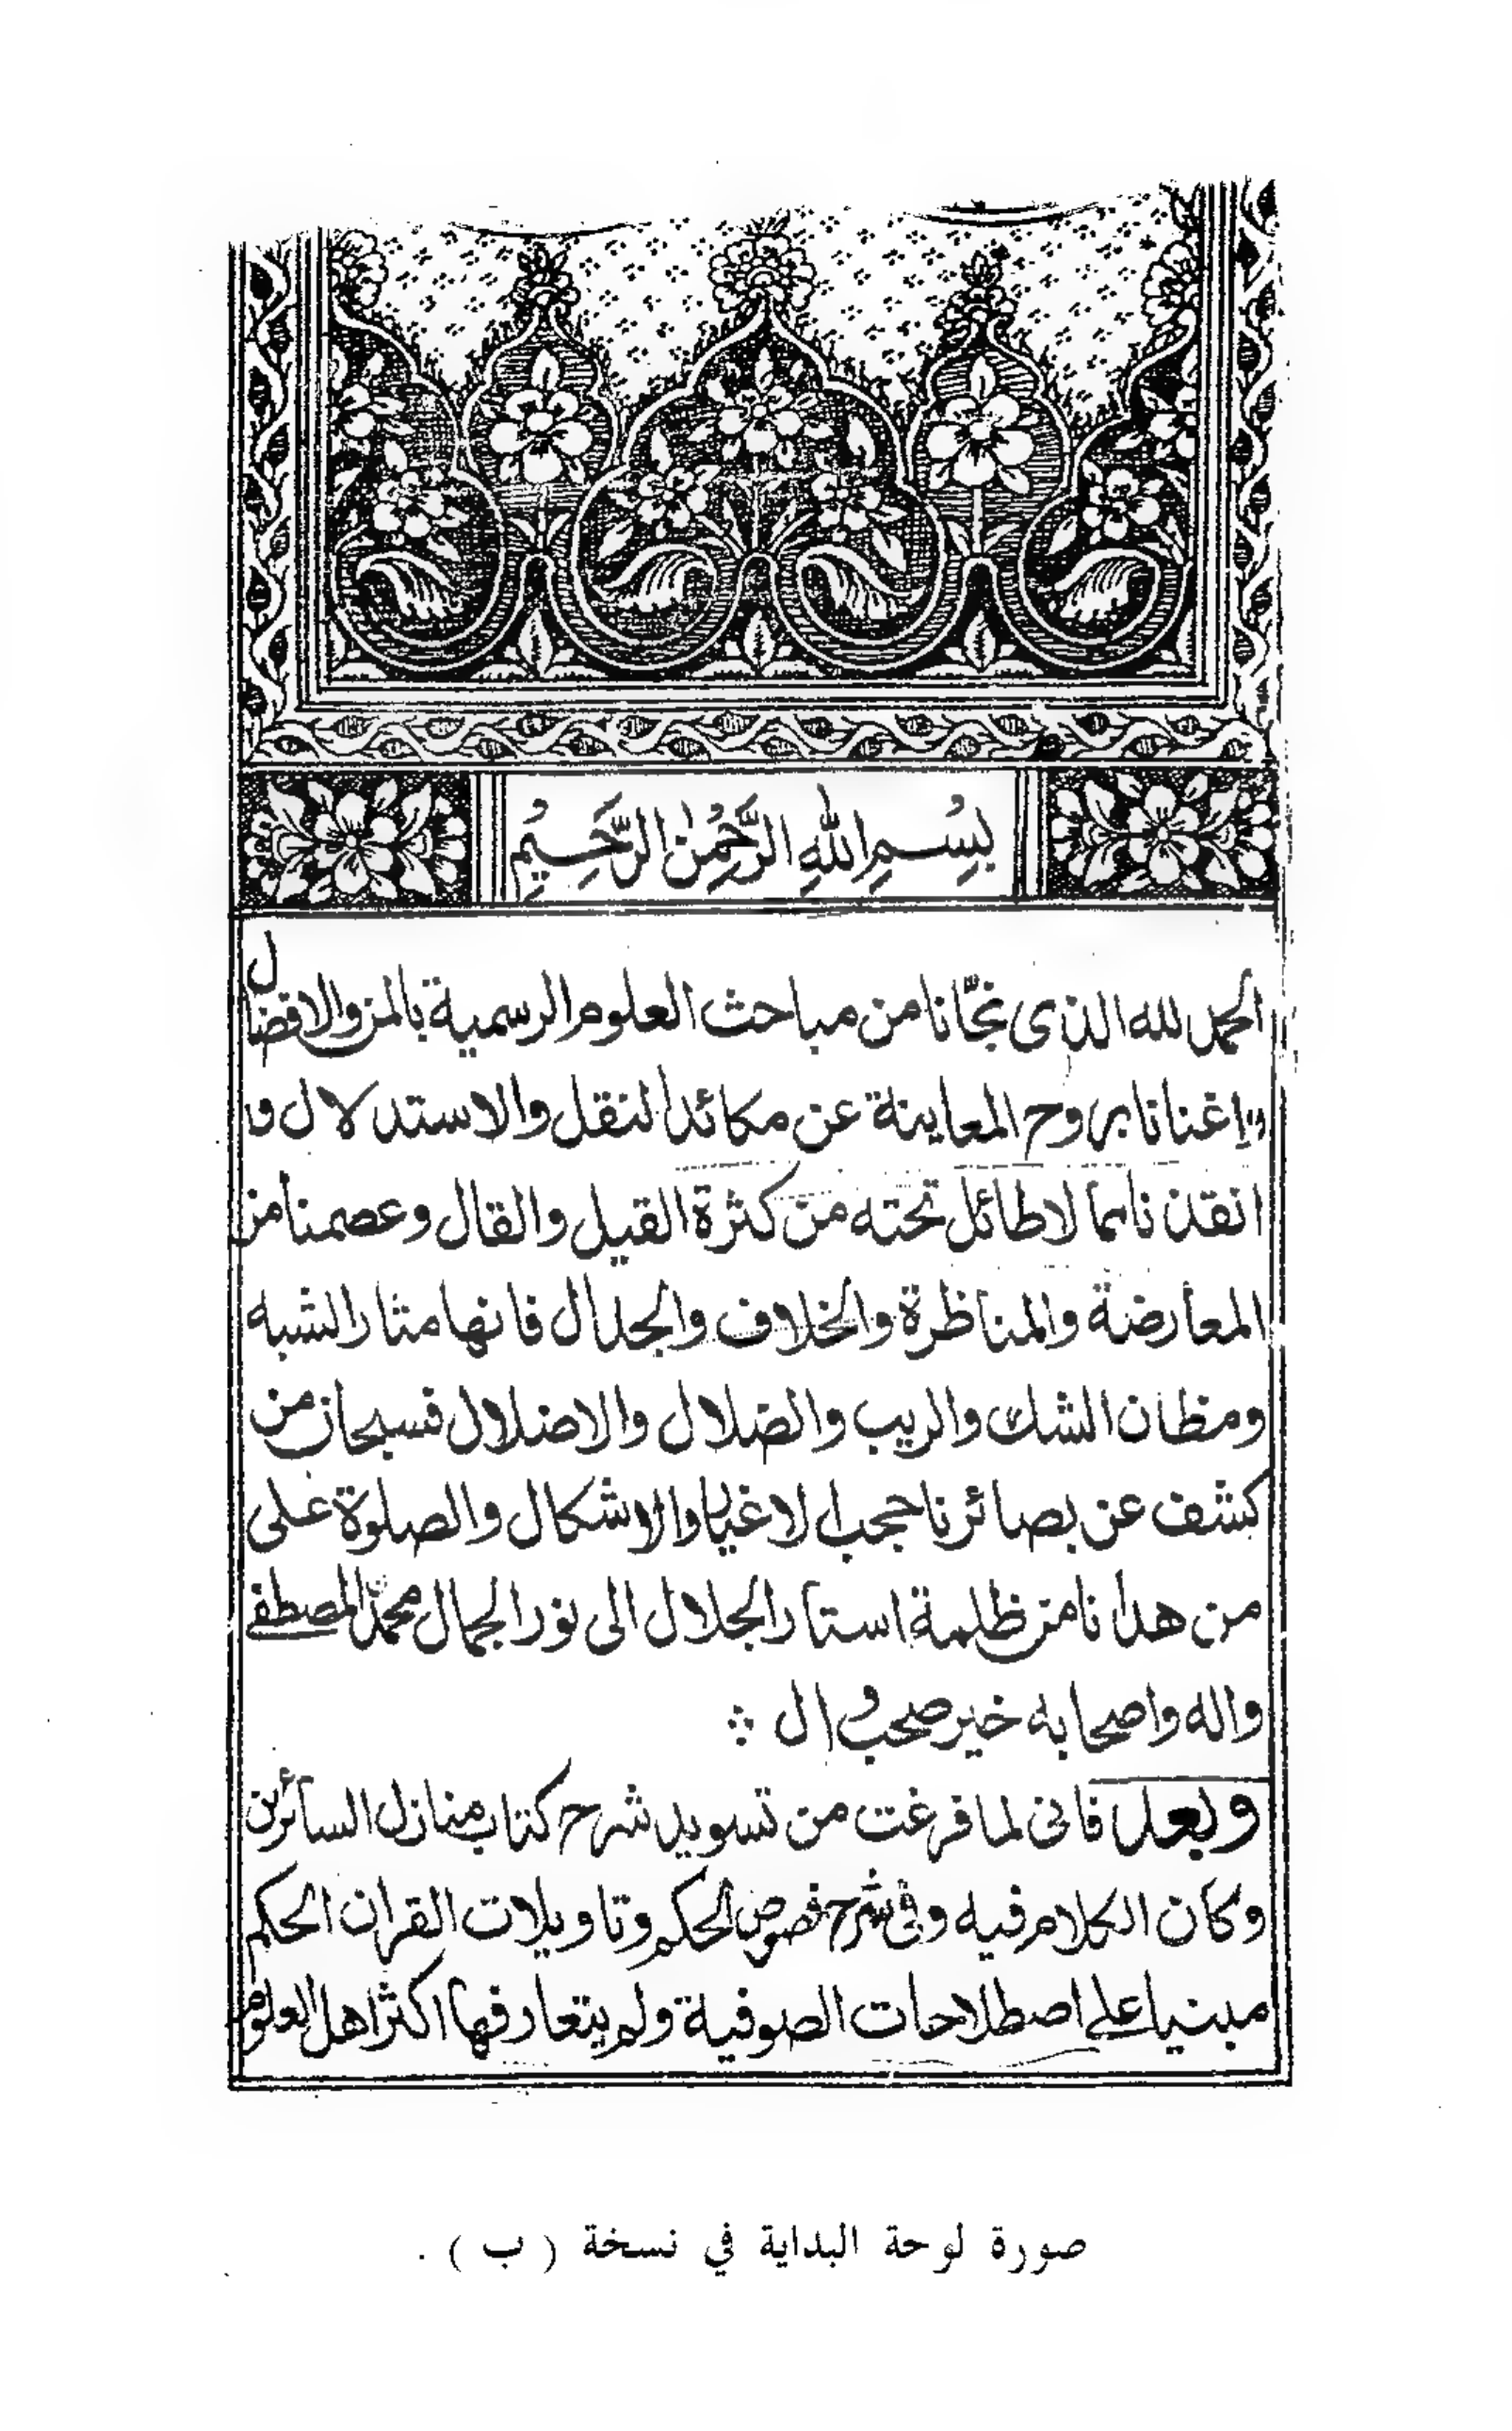 بِسْمِ اللّٰهِ الرَّحْمٰنِ الرَّحِيْمِ
الحمد لله الذى نجّانا من مباحث العلوم الرسمية بالمن والافضال
واغنانا بروح المعاينة عن مكائد النقل والاستدلال و
انقذنا بما لا طائل تحته من كثرة القيل والقال وعصمنا من
المعارضة والمناظرة والخلاف والجدال فانها مثار الشبه
ومظان الشك والريب والضلال والاضلال فسبحان من
كشف عن بصائرنا حجب الاغيار والاشكال والصلوة على
من هدانا من ظلمة استار الجلال الى نور الجمال محمد المصطفى
واله واصحابه خير صحب وال
وبعد فانى لما فرغت من تسويد شرح كتاب منازل السائرين
وكان الكلام فيه وفى شرح فصوص الحكم وتاويلات القران الحكيم
مبنيا على اصطلاحات الصوفية ولم يتعارفها اكثر اهل العلوم
صورة لوحة البداية في نسخة ( ب ) .